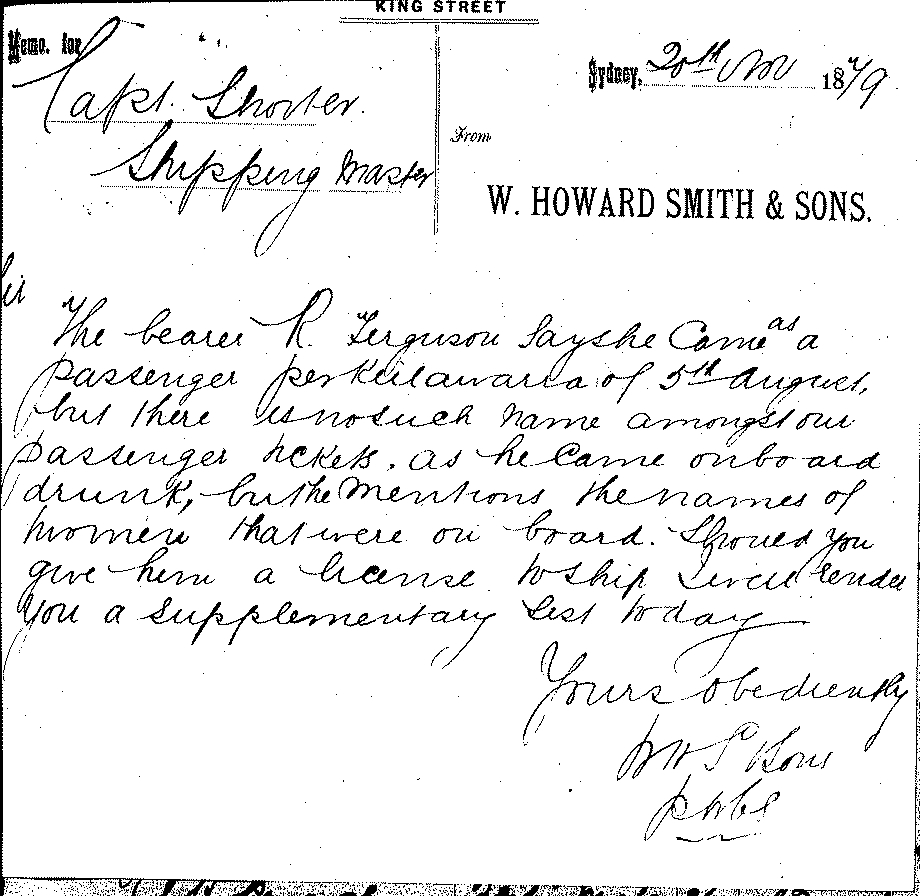 KING STREET
Memo. for
Capt. Shorter.
Shipping Master
Sydney, 20th Nov 1879
From
W. HOWARD SMITH & SONS.
Sir
The bearer R. Ferguson says he came as a
passenger per Keilawarra of 5th August,
but there is no such name amongst our
passenger tickets. as he came on board
drunk, but he mentions the names of
women that were on board. Should you
give him a license to ship I will render
you a supplementary list today
Yours obediently
W H S & Sons